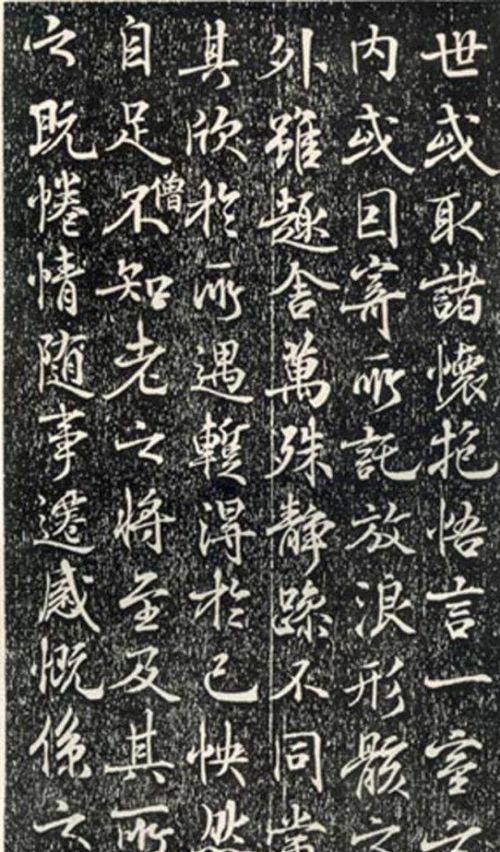 世或取諸懷抱悟言一室之
内或因寄所託放浪形骸之
外雖趣舍萬殊静躁不同當
其欣於所遇蹔得於己怏然
自足不知老之將至及其所
僧
之既惓情随事遷感慨係之